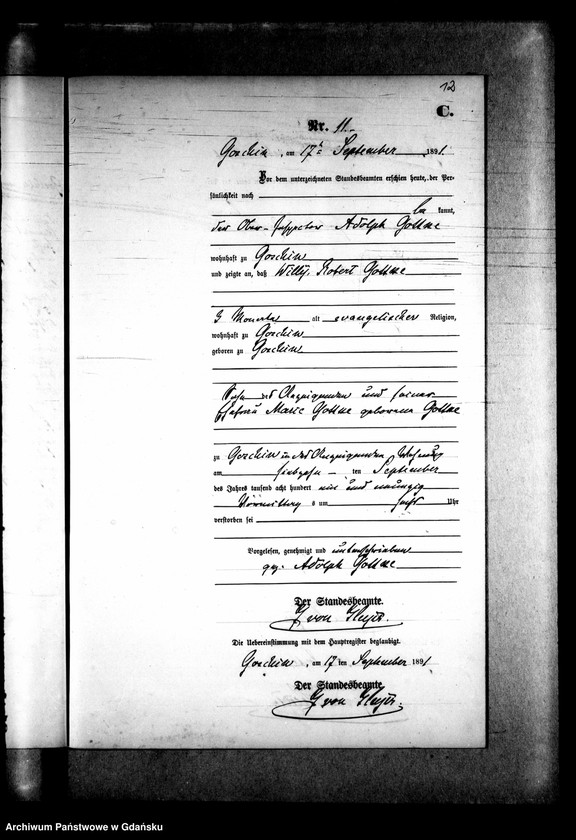 12
C.
Nr. 11.
Goschin, am 17ⁿ September 1891.
Vor dem unterzeichneten Standesbeamten erschien heute, der Per-
sönlichkeit nach
be kannt,
der Ober-Inspector Adolph Gottke
wohnhaft zu Goschin
und zeigte an, daß Willy, Robert Gottke
3 Monate alt evangelischer Religion,
wohnhaft zu Goschin
geboren zu Goschin
Sohn des Anzeigenden und seiner
Ehefrau Marie Gottke geborenen Gottke
zu Goschin in des Anzeigenden Wohnung
am siebzehn ten September
des Jahres tausend acht hundert ein und neunzig
Vormittag s um Uhr
verstorben sei
Vorgelesen, genehmigt und unterschrieben
gez. Adolph Gottke
Der Standesbeamte.
von Heyer.
Die Uebereinstimmung mit dem Hauptregister beglaubigt.
Goschin, am 17 ten September 1891
Der Standesbeamte.
von Heyer.
Archiwum Państwowe w Gdańsku